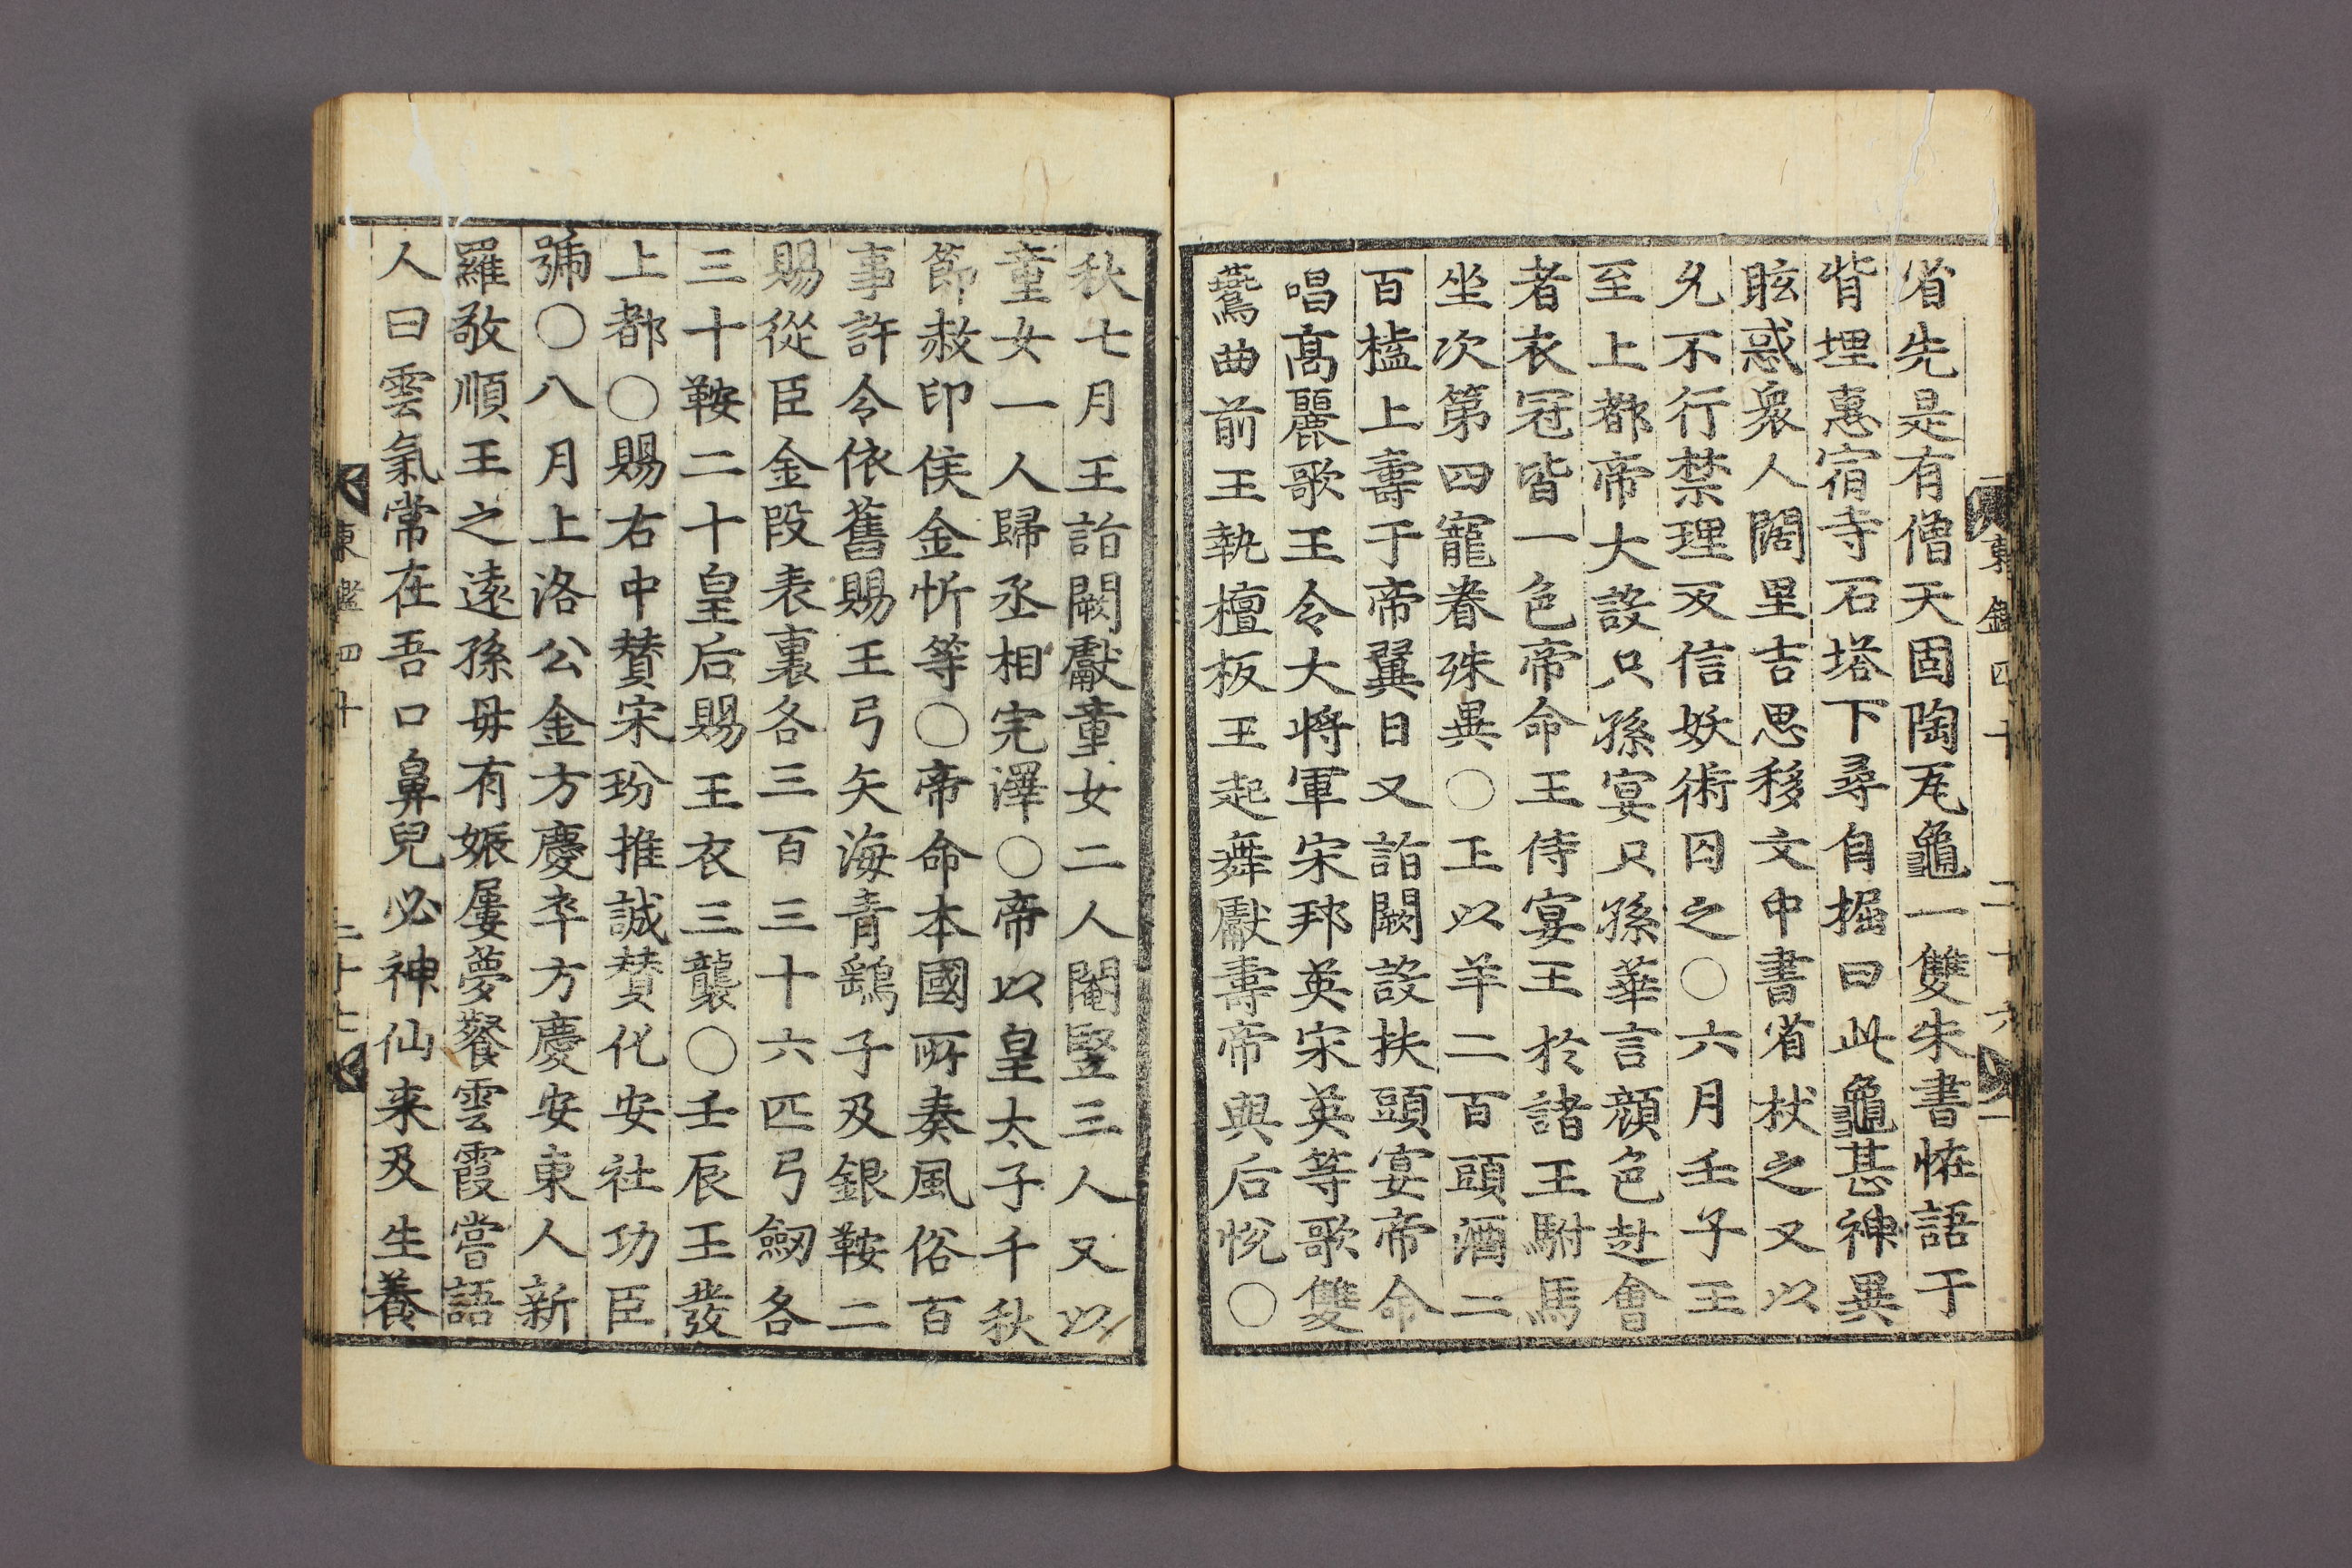 東鑑四十 二十六
省先是有僧天固陶瓦龜一雙朱書怪語于
背埋惠宿寺石塔下尋自掘曰此龜甚神異
眩惑衆人闊里吉思移文中書省杖之又以
允不行禁理反信妖術囚之〇六月壬子王
至上都帝大設只孫宴只孫華言顔色赴會
者衣冠皆一色帝命王侍宴王於諸王駙馬
坐次第四寵眷殊異〇王以羊二百頭酒二
百榼上壽于帝翼日又詣闕設扶頭宴帝命
唱高麗歌王令大將軍宋邦英宋英等歌雙
鷰曲前王執檀板王起舞獻壽帝與后悅〇
秋七月王詣闕獻童女二人閹竪三人又以
童女一人歸丞相完澤〇帝以皇太子千秋
節赦印侯金忻等〇帝命本國所奏風俗百
事許令依舊賜王弓矢海青鷂子及銀鞍二
賜從臣金段表裏各三百三十六匹弓劒各
三十鞍二十皇后賜王衣三襲〇壬辰王發
上都〇賜右中贊宋玢推誠贊化安社功臣
號〇八月上洛公金方慶卒方慶安東人新
羅敬順王之遠孫母有娠屢夢餐雲霞嘗語
人曰雲氣常在吾口鼻兒必神仙来及生養
東鑑四十 二十七